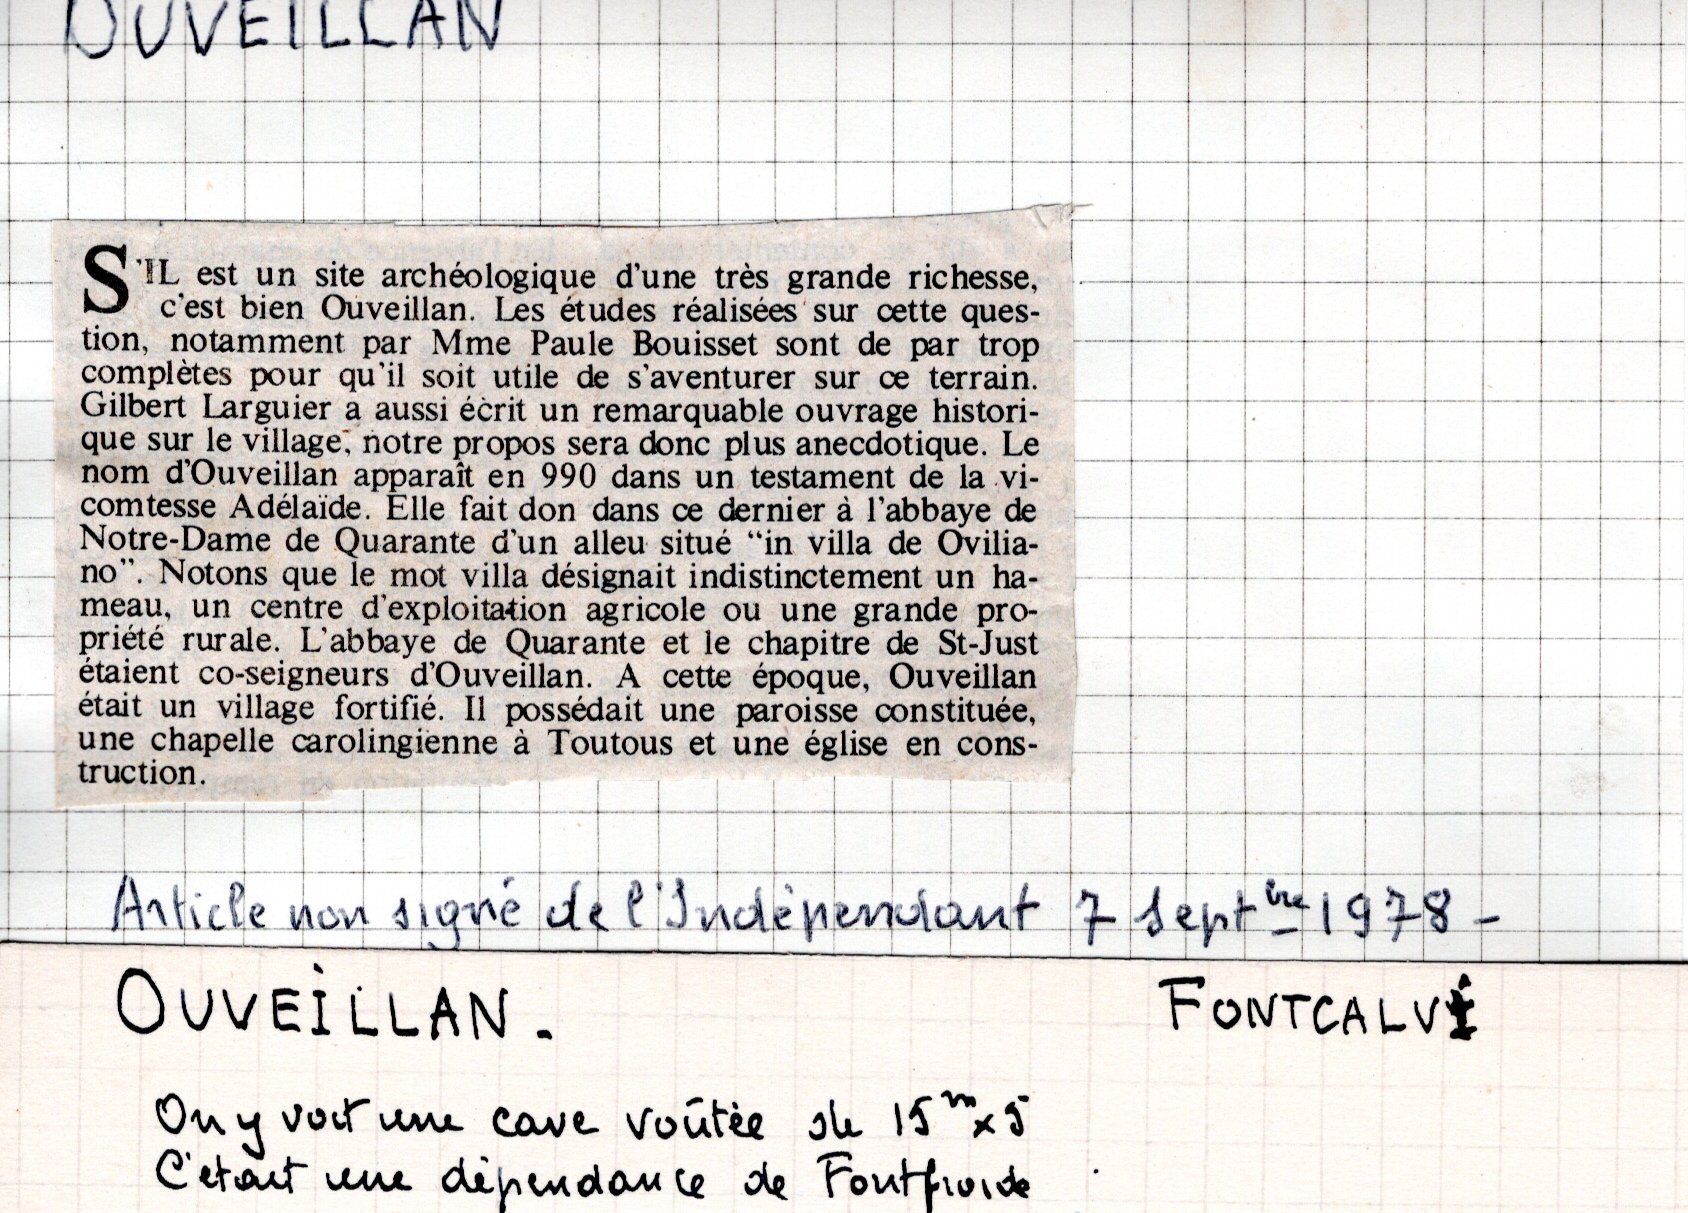 OUVEILLAN
S'IL est un site archéologique d'une très grande richesse,
c'est bien Ouveillan. Les études réalisées sur cette ques-
tion, notamment par Mme Paule Bouisset sont de par trop
complètes pour qu'il soit utile de s'aventurer sur ce terrain.
Gilbert Larguier a aussi écrit un remarquable ouvrage histori-
que sur le village, notre propos sera donc plus anecdotique. Le
nom d'Ouveillan apparaît en 990 dans un testament de la vi-
comtesse Adélaïde. Elle fait don dans ce dernier à l'abbaye de
Notre-Dame de Quarante d'un alleu situé “in villa de Ovilia-
no”. Notons que le mot villa désignait indistinctement un ha-
meau, un centre d'exploitation agricole ou une grande pro-
priété rurale. L'abbaye de Quarante et le chapitre de St-Just
étaient co-seigneurs d'Ouveillan. A cette époque, Ouveillan
était un village fortifié. Il possédait une paroisse constituée,
une chapelle carolingienne à Toutous et une église en cons-
truction.
Article non signé de l'Indépendant 7 Septbre 1978 -
OUVEILLAN. FONTCALVI
On y voit une cave voûtée de 15m x 5
C'était une dépendance de Fontfroide